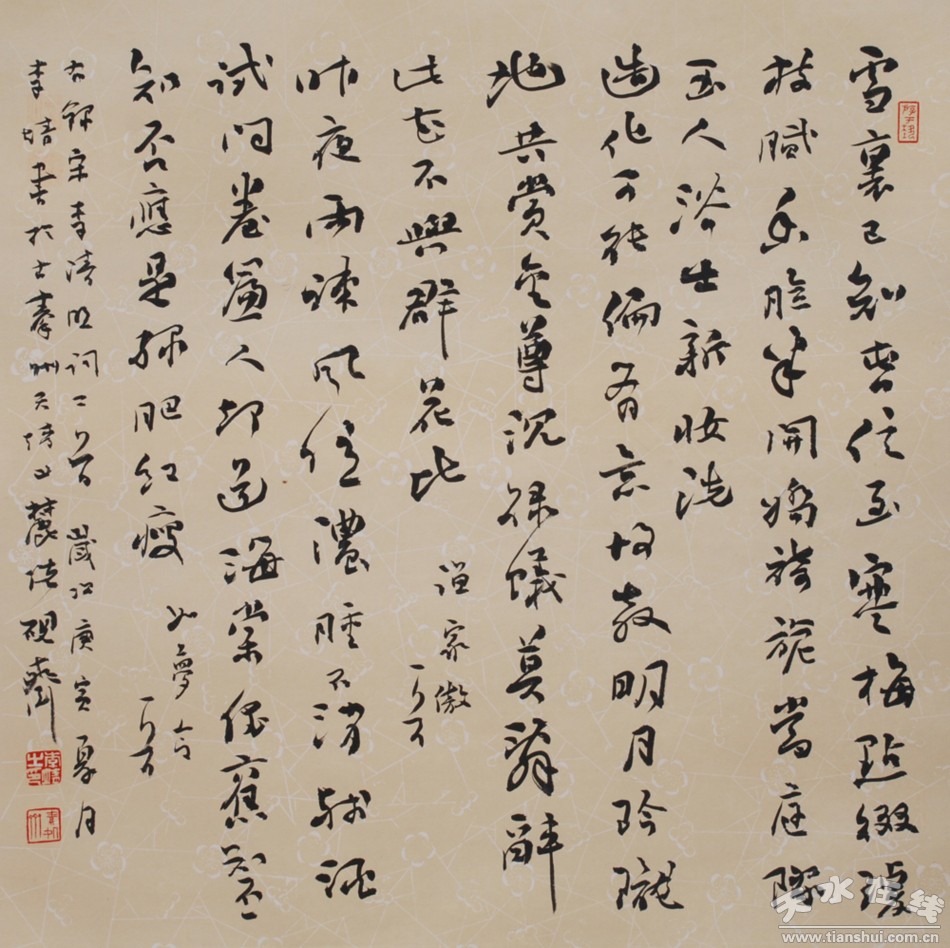 雪裏已知春信至寒梅點綴瓊
枝膩香臉半開嬌旖旎當庭際
玉人浴出新妝洗
造化可能偏有意故教明月玲瓏
地共賞金尊沉綠蟻莫辭醉
此花不與群花比 漁家傲
一首
昨夜雨疎風驟濃睡不消殘酒
試問卷簾人却道海棠依舊知否
知否應是綠肥紅瘦 如夢令
一首
右錄宋李清照詞二首 歲次庚寅夏月
李培書於古秦州天靖山麓硯齋
天水在线
www.tianshui.com.cn